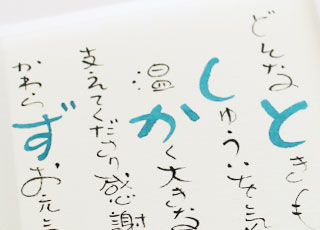 どんなときも
しゅういを
温かく大きな
支えてくださり感謝
かわらずお元